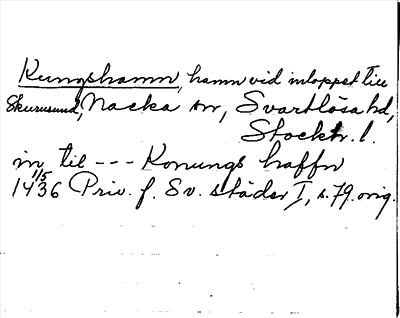 Kungshamn, hamn vid inloppet till
Skurusund, Nacka sn, Svartlösa hd,
Stockh. l.
in til --- Konungs haffn
1/5
1436 Priv. f. Sv. städer I, s. 79. orig.